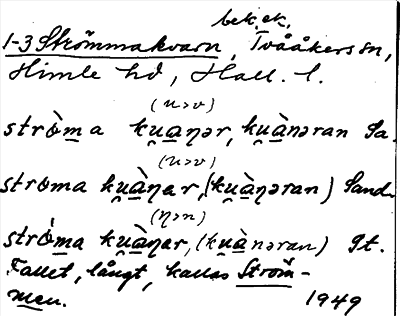 bek. ek.
1-3 Strömmakvarn, Tvååkers sn,
Himle hd, Hall. l.
(u>v)
strò̱m̱a ku̯a̱ŋər, ku̯à̱nəran Sa.
(u>v)
stroma ku̯à̱ŋər, (ku̯à̱ŋəran) Sand.
(ŋ>n)
strò̱m̱a ku̯à̱ŋər, (ku̯à̱nəran) St.
Fallet, långt, kallas Ström-
men. 1949